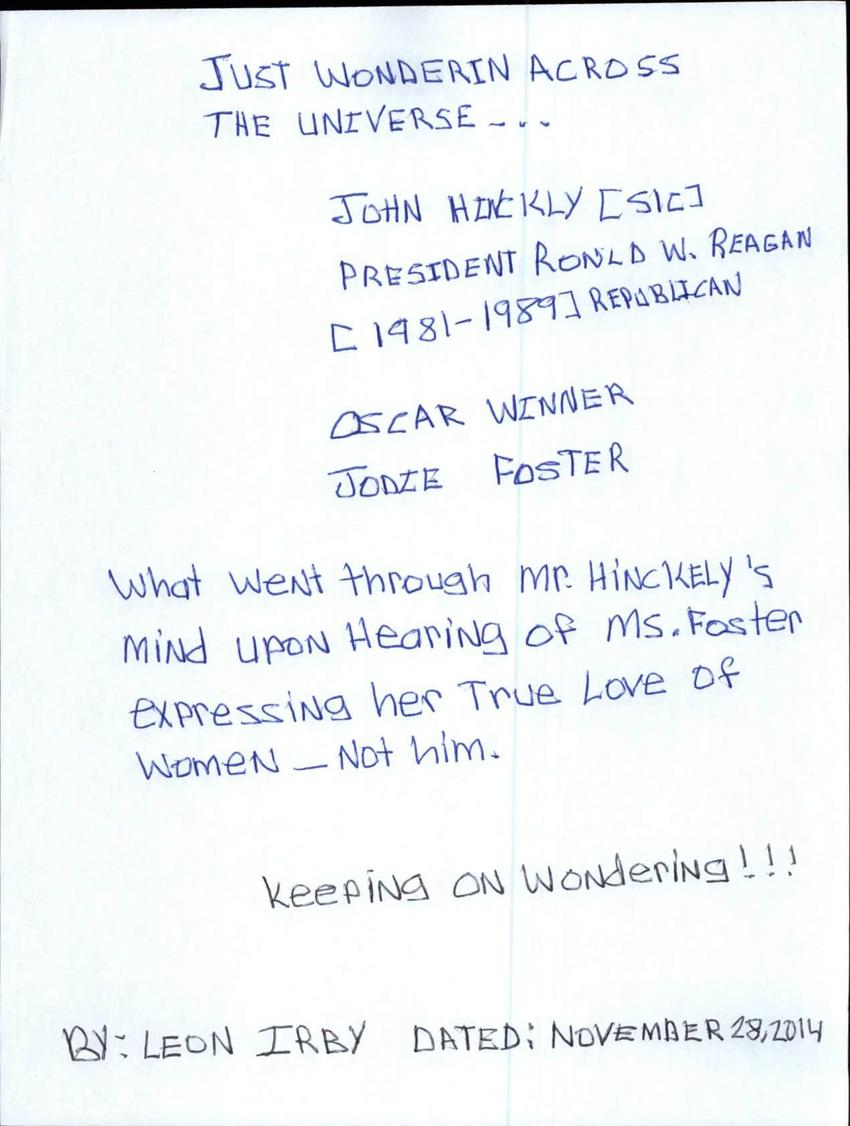 JUST WONDERIN ACROSS
THE UNIVERSE - . .
JOHN HINCKLY [SIC]
PRESIDENT RONLD W. REAGAN
[1981-1989] REPUBLICAN
OSCAR WINNER
JODIE FOSTER
What went through Mr. HiNCKELY's
MiNd upoN Hearing of Ms. Foster
expressiNg her True Love of
WomeN — Not him.
keepiNg ON WoNderiNg!!!
BY: LEON IRBY DATED: NOVEMBER 28, 2014